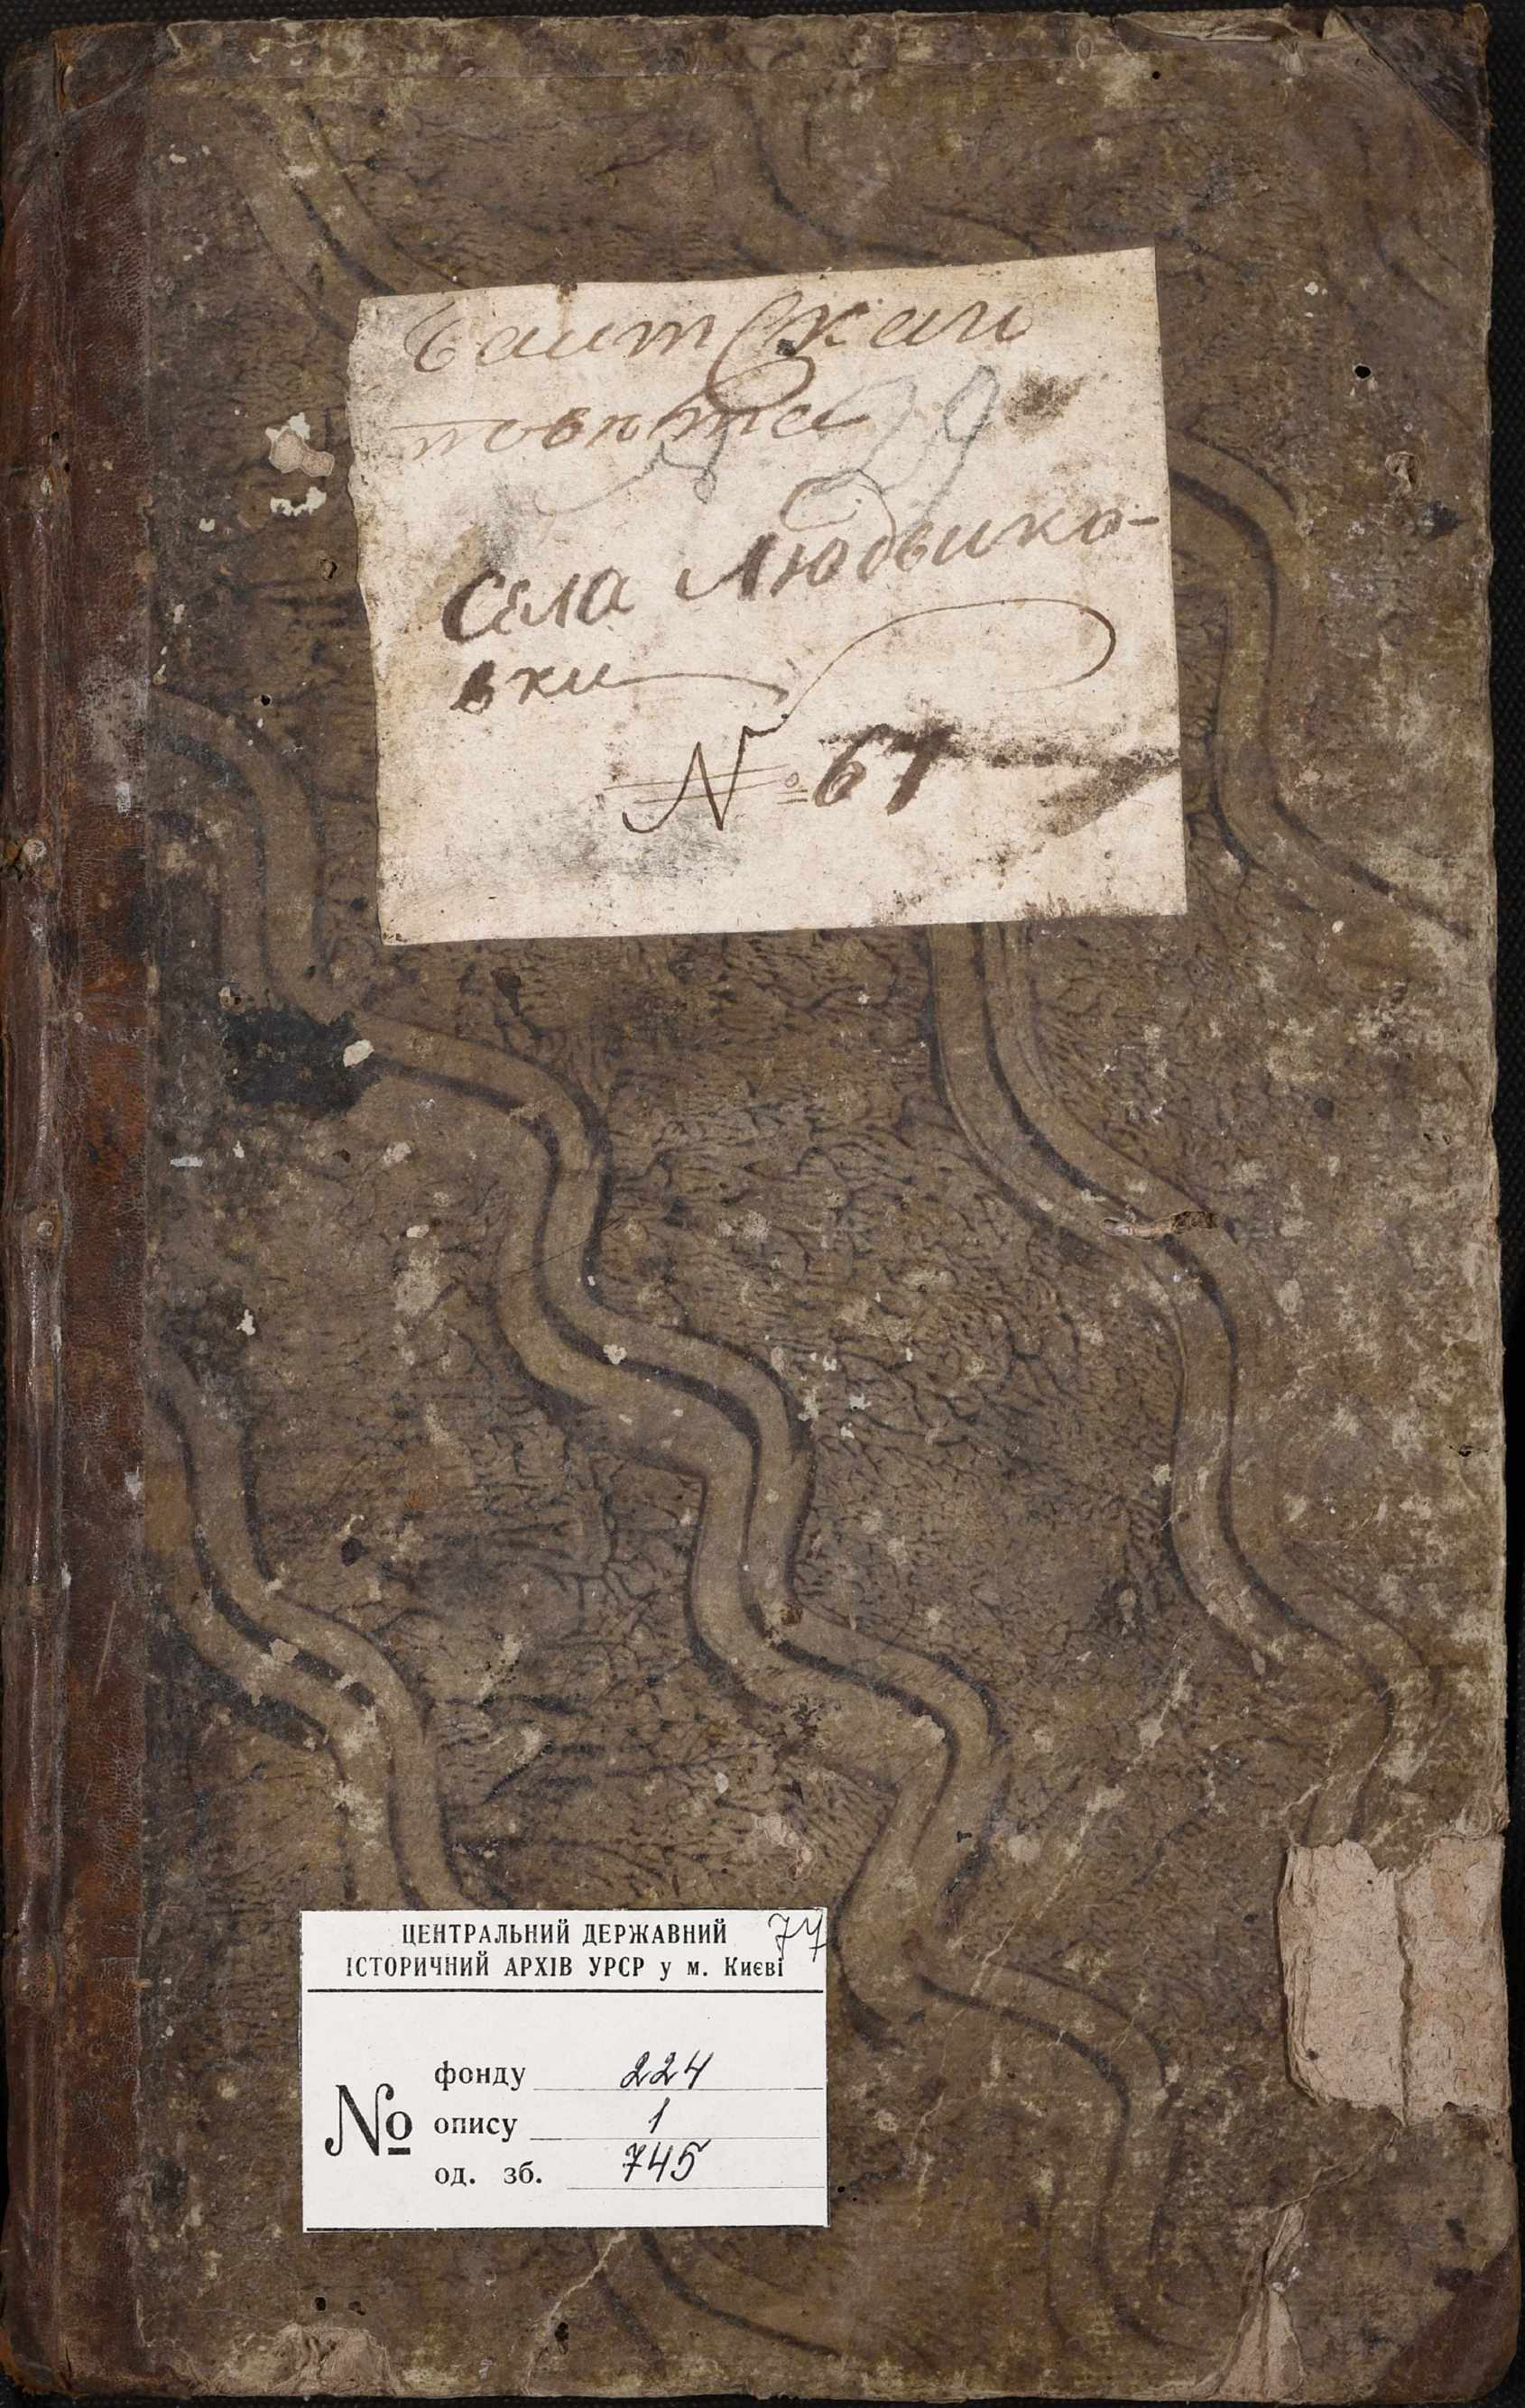 Балтскаго
повѣта
Села Людвико-
вки
№ 61
ЦЕНТРАЛЬНИЙ ДЕРЖАВНИЙ 77
ІСТОРИЧНИЙ АРХІВ УРСР у м. Києві
№
фонду 224
опису 1
од. зб. 745